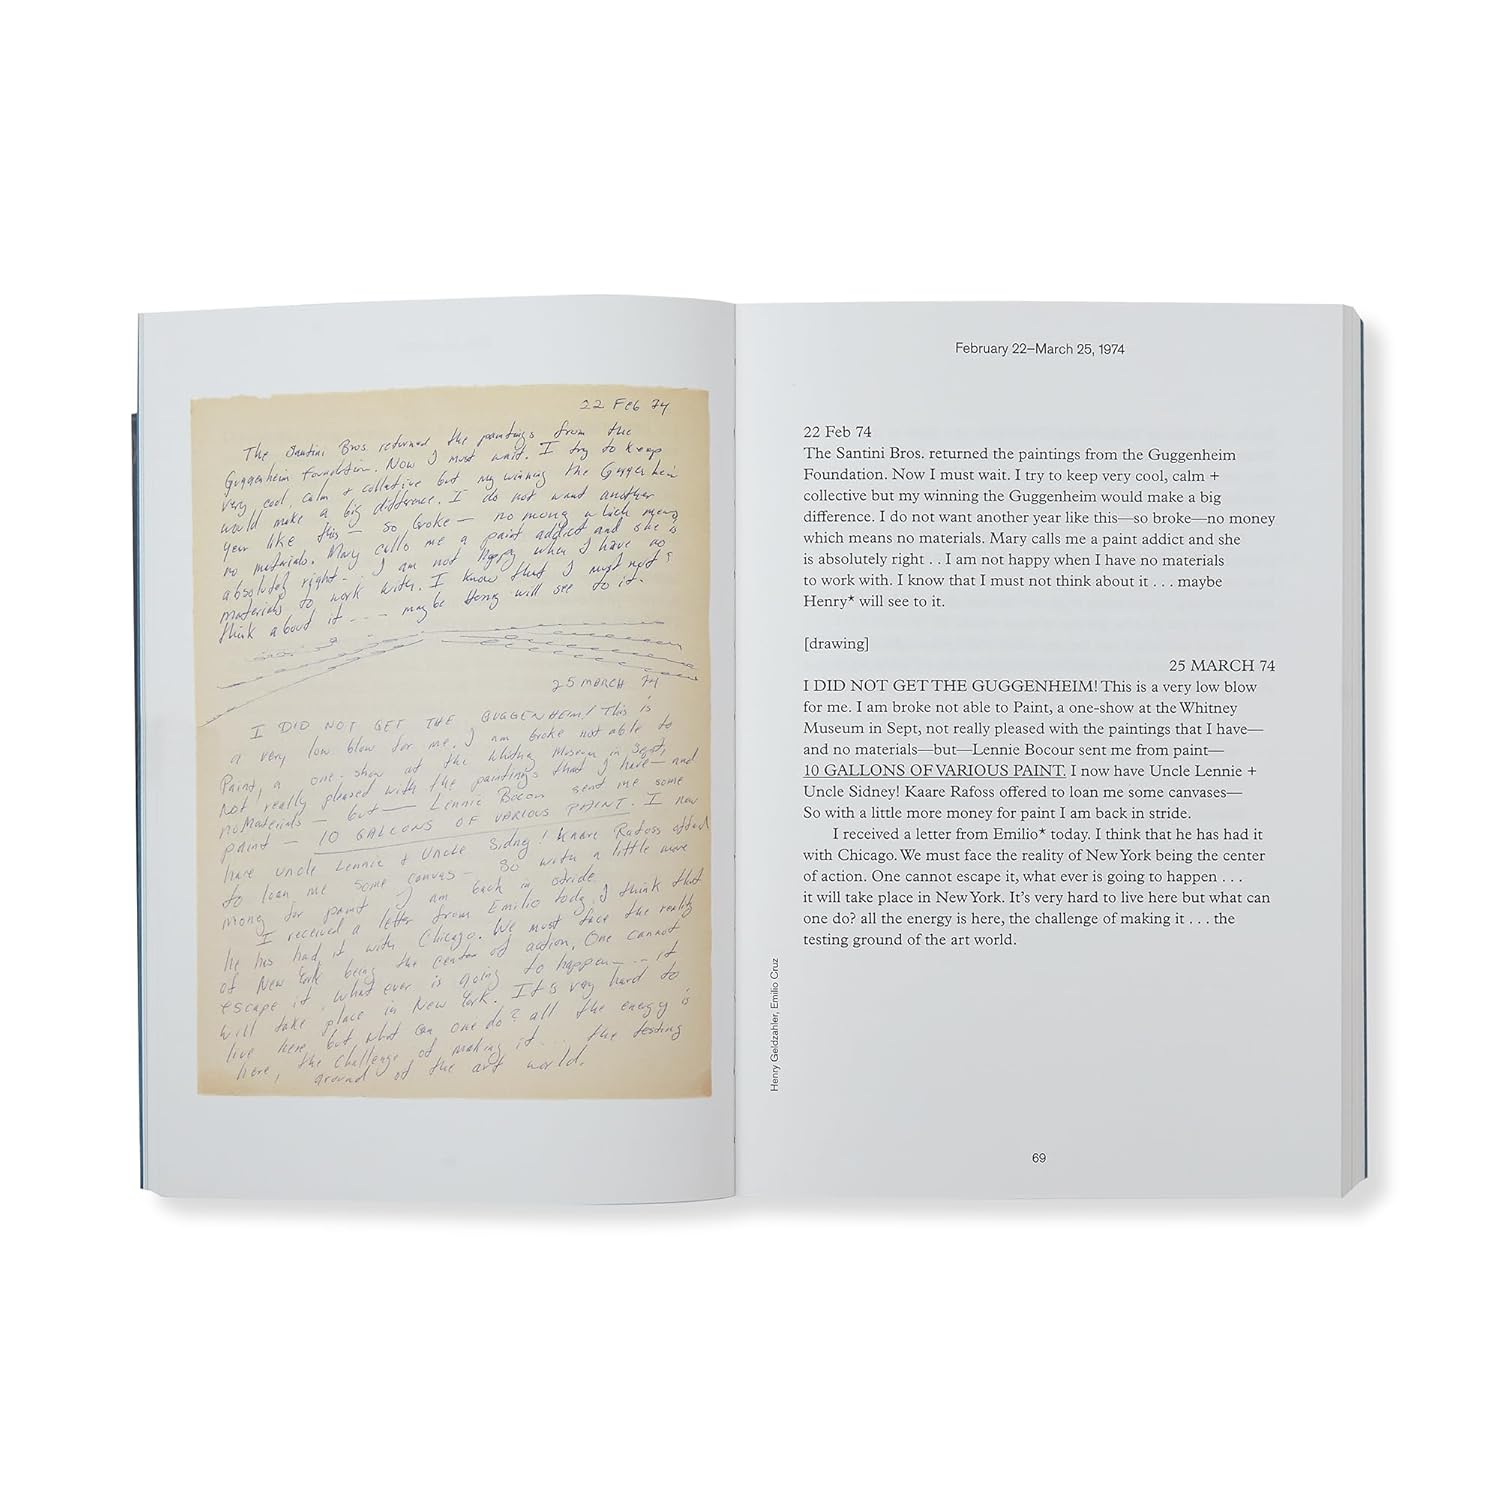 22 Feb 74
The Santini Bros returned the paintings from the
Guggenheim Foundation. Now I must wait. I try to keep
very cool, calm + collative but my winning the Guggenheim
would make a big difference. I do not want another
year like this - so broke - no money which means
no materials. Mary calls me a paint addict and she is
absolutely right - . I am not happy when I have no
materials to work with. I know that I must not
think about it --- maybe Henry will see to it.
25 MARCH 74
I DID NOT GET THE GUGGENHEIM! This is
a very low blow for me. I am broke not able to
Paint, a one-show at the Whitney Museum in Sept,
not really pleased with the paintings that I have - and
no Materials - but - Lennie Bocour sent me some
paint - 10 GALLONS OF VARIOUS PAINT. I now
have Uncle Lennie + Uncle Sidney! Kaare Rafoss offered
to loan me some canvas - So with a little more
money for paint I am back in stride.
I received a letter from Emilio today. I think that
he has had it with Chicago. We must face the reality
of New York being the center of action. One cannot
escape it, what ever is going to happen --- it
will take place in New York. It's very hard to
live here but what can one do? all the energy is
here, the challenge of making it ... the testing
ground of the art world.
February 22–March 25, 1974
22 Feb 74
The Santini Bros. returned the paintings from the Guggenheim
Foundation. Now I must wait. I try to keep very cool, calm +
collective but my winning the Guggenheim would make a big
difference. I do not want another year like this—so broke—no money
which means no materials. Mary calls me a paint addict and she
is absolutely right . . I am not happy when I have no materials
to work with. I know that I must not think about it . . . maybe
Henry★ will see to it.
[drawing]
25 MARCH 74
I DID NOT GET THE GUGGENHEIM! This is a very low blow
for me. I am broke not able to Paint, a one-show at the Whitney
Museum in Sept, not really pleased with the paintings that I have—
and no materials—but—Lennie Bocour sent me from paint—
10 GALLONS OF VARIOUS PAINT. I now have Uncle Lennie +
Uncle Sidney! Kaare Rafoss offered to loan me some canvases—
So with a little more money for paint I am back in stride.
I received a letter from Emilio★ today. I think that he has had it
with Chicago. We must face the reality of New York being the center
of action. One cannot escape it, what ever is going to happen . . .
it will take place in New York. It's very hard to live here but what can
one do? all the energy is here, the challenge of making it . . . the
testing ground of the art world.
Henry Geldzahler, Emilio Cruz
69